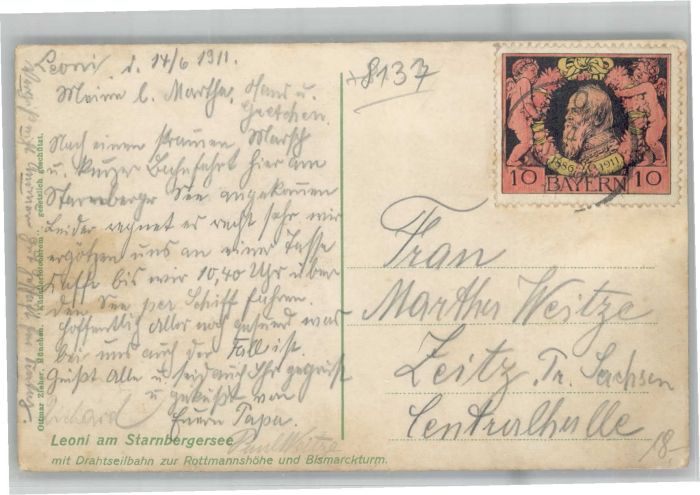 Leoni, d. 14/6 1911.
Meine l. Martha, Hans u.
Gretchen.
Nach einem strammen Marsch
u. kurzer Bahnfahrt hier am
Starnberger See angekommen
Leider regnet es recht sehr wir
ergötzen uns an einer Tasse
Kaffe bis wir 10,40 Uhr über
den See per Schiff fahren.
Hoffentlich Alles noch gesund was
bei uns auch der Fall ist.
Grüßt Alle u. seid auch Ihr gegrüßt
u. geküßt von
Eurem Papa.
Richard
Paul Weitze
Leoni am Starnbergersee
mit Drahtseilbahn zur Rottmannshöhe und Bismarckturm.
Ottmar Zieher, München. gesetzlich geschützt.
+8137
1886 1911
10 BAYERN 10
Frau
Martha Weitze
Zeitz, Pr. Sachsen
Centralhalle
18-